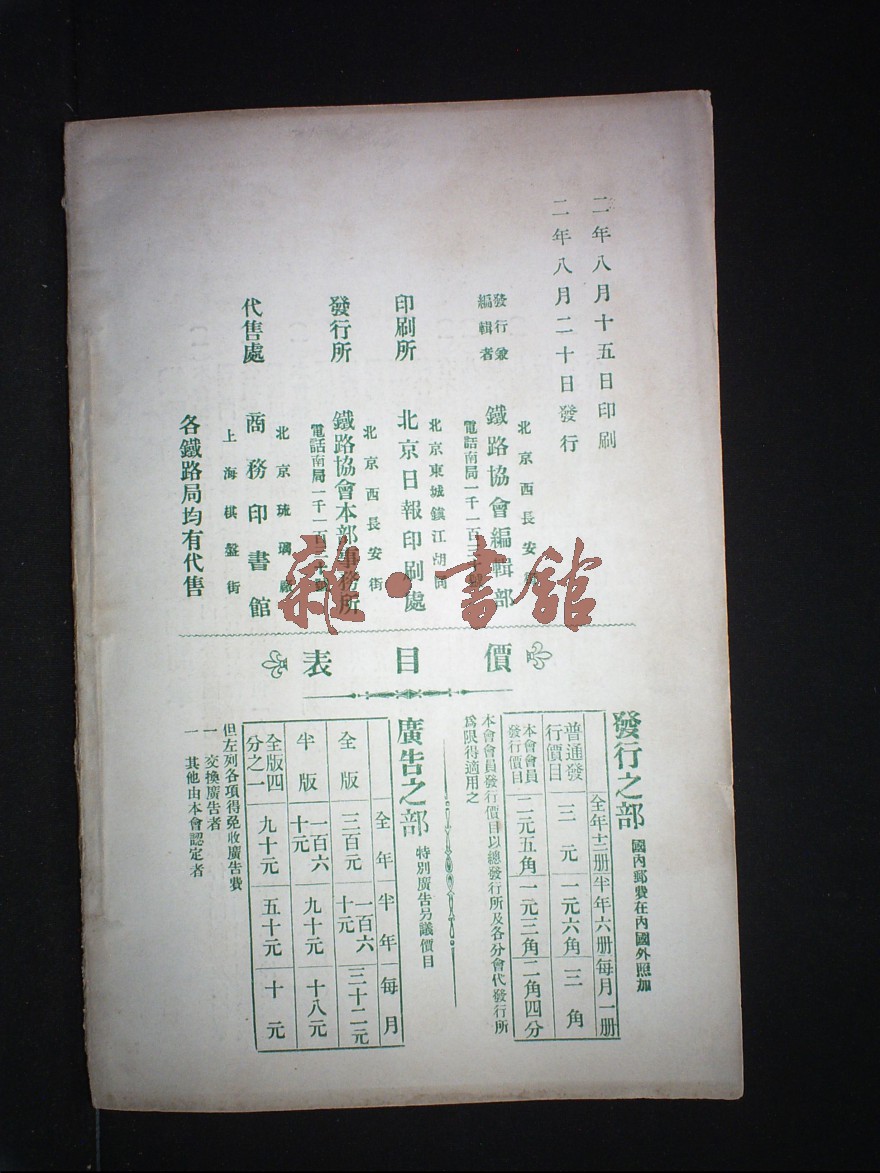 二年八月十五日印刷
二年八月二十日發行
發行兼
編輯者
北京西長安
鐵路協會編輯部
電話南局一千一百三十
印刷所
北京東城鎮江胡同
北京日報印刷處
發行所
北京西長安街
鐵路協會本部事務所
電話南局一千一百三十
代售處
北京琉璃廠
商務印書館
上海棋盤街
各鐵路局均有代售
雜·書館
價目表
發行之部
國內郵費在內國外照加
全年十二册 半年六册 每月一册
普通發行價目 三元 一元六角 三角
本會會員發行價目 二元五角 一元三角 二角四分
本會會員發行價目以總發行所及各分會代發行所
爲限得適用之
廣告之部
特別廣告另議價目
全年 半年 每月
全版 三百元 一百六十元 三十二元
半版 一百六十元 九十元 十八元
全版四分之一 九十元 五十元 十元
但左列各項得免收廣告費
一 交換廣告者
一 其他由本會認定者